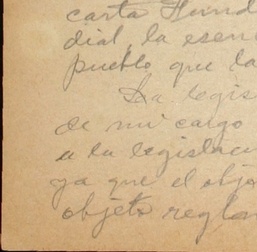 carta Fund
dial, la esen
pueblo que la
La legis
de mi cargo
a la legislac
ya que el obje
objeto reglam